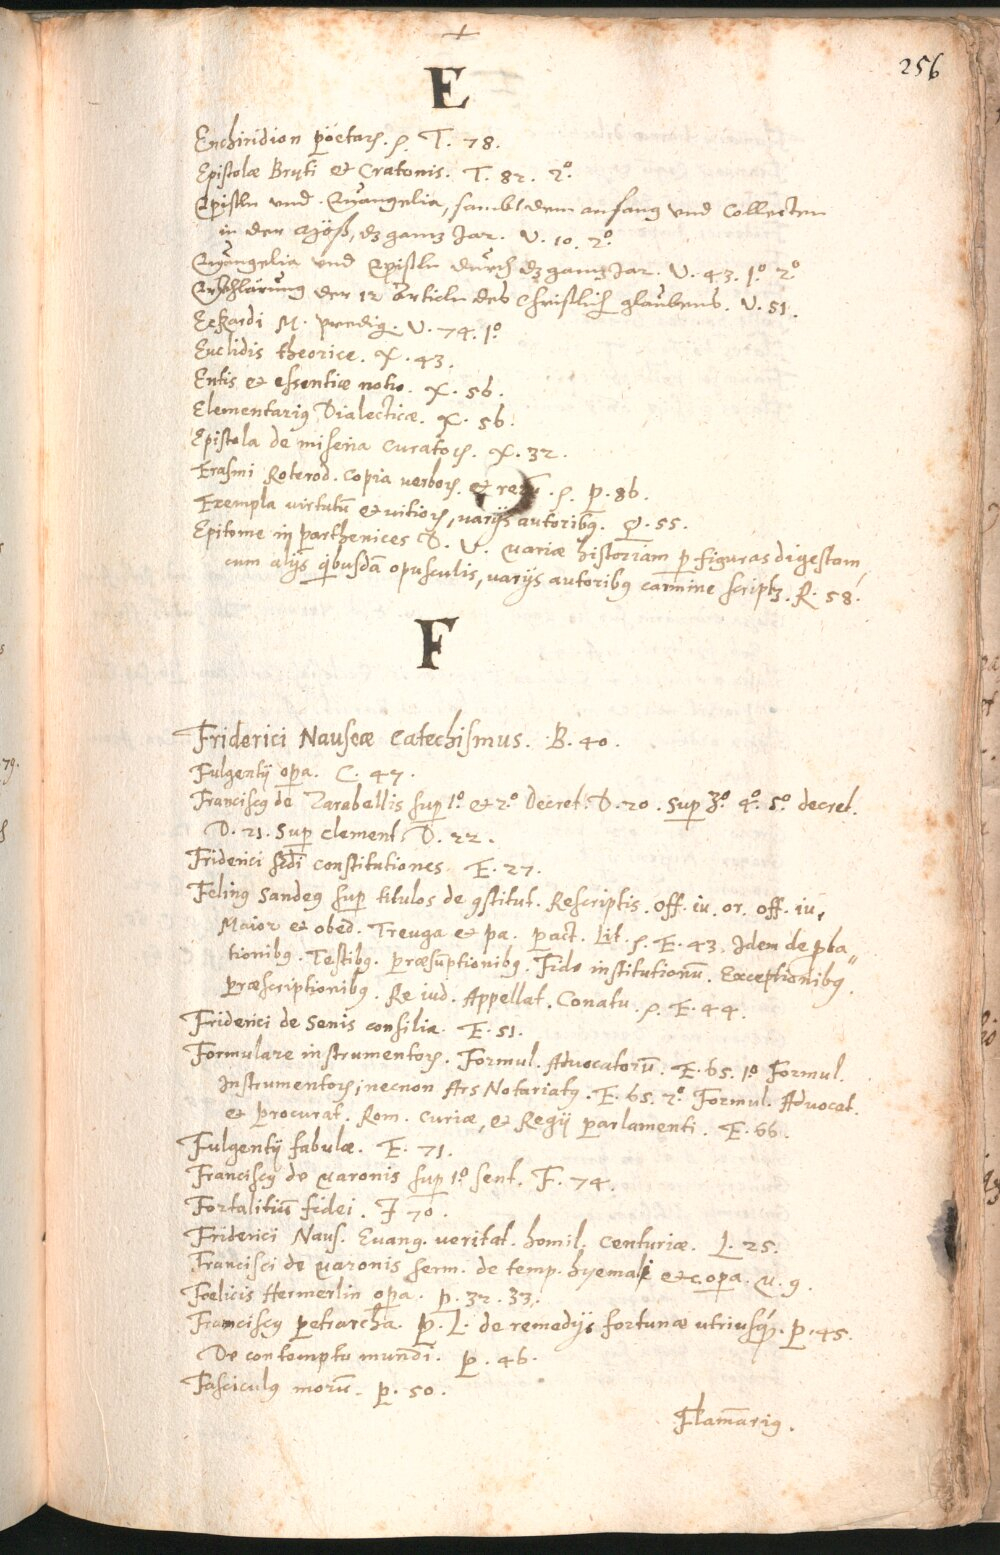 +
256
E
Enchiridion poëtarꝝ. ꝭ. T. 78.
Epistolæ Bruti et Cratonis. T. 82. 2º
Epistln vnd Evangelia, sambt dem anfang vnd Collecten
in der Mösß, dz gantz Jar. V. 10. 2º
Evangelia vnd Epistln durch dz gantz Jar. V. 43. 1º 2º
Erkhlärung der 12 Articln des Christlichn glaubens. V. 51.
Eckardi M. predig. V. 74. 1º
Euclidis theorice. X. 43.
Entis et essentiæ notio. X. 56.
Elementariꝰ Dialecticæ. X. 56.
Epistola de miseria curatoꝝ. X. 32.
Erasmi Roterod. copia verboꝝ et rerū. ꝭ. p. 86.
Exempla virtutū et vitioꝝ, varijs autoribꝰ. Q. 55.
Epitome in parthenices D. V. Mariæ historiam p figuras digestam,
cum alijs qibusdā opusculis, varijs autoribꝰ carmine scriptꝫ. R. 58.
F
Friderici Nauseæ Catechismus. B. 40.
Fulgentij opa. C. 47.
Franciscꝰ de Zarabellis sup 1º et 2º Decret. D. 20. Sup 3º 4º 5º decret.
D. 21. Sup Clement. D. 22.
Friderici scdi constitutiones. E. 27.
Felinꝰ Sandeꝰ sup titulos de ꝯstitut. Rescriptis. off. iu. or. off. iu.
Maior et obed. Treuga et pa. pact. Lit. ꝭ. E. 43. Idem de pba„
tionibꝰ. Testibꝰ. præsūptionibꝰ. Fide institutionū. Exceptionibꝰ.
præscriptionibꝰ. Re iud. Appellat. Conatu. ꝭ. E. 44.
Friderici de Senis consilia. E. 51.
Formulare instrumentoꝝ. Formul. Advocatorū. E. 65. 1º Formul.
Instrumentoꝝ, necnon Ars Notariatꝰ. E. 65. 2º Formul. Advocat.
et procurat. Rom. curiæ, et Regij parlamenti. E. 66.
Fulgentij fabulæ. E. 71.
Franciscꝰ de Maronis sup 1º sent. F. 74.
Fortalitiū fidei. I 70.
Friderici Naus. Evang. veritat. homil. centuriæ. L. 25.
Francisci de Maronis serm. de temp. hyemali et c. opa. M. 9.
Fœlicis Hermerlin opa. p. 32. 33.
Franciscꝰ petrarcha. p. L. de remedijs fortunæ utriusq́. p. 45.
De contemptu mundi. p. 46.
Fasciculꝰ morū. p. 50.
Flam̄ariꝰ.